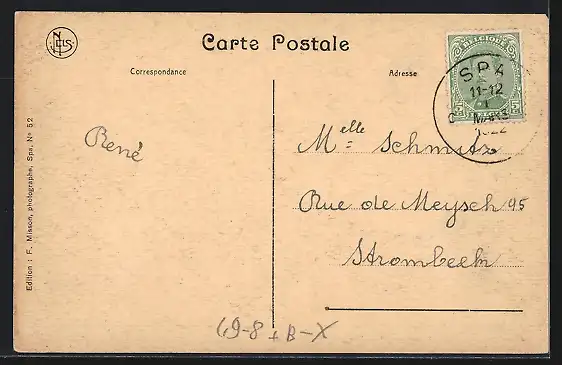 NELS
Carte Postale
Correspondance
Adresse
BELGIQUE
5
5
SPA
11-12
1
MARS
1922
René
Melle Schmitz
Rue de Meysch 95
Strombeek
Edition : F. Misson, photographe, Spa, Nº 52